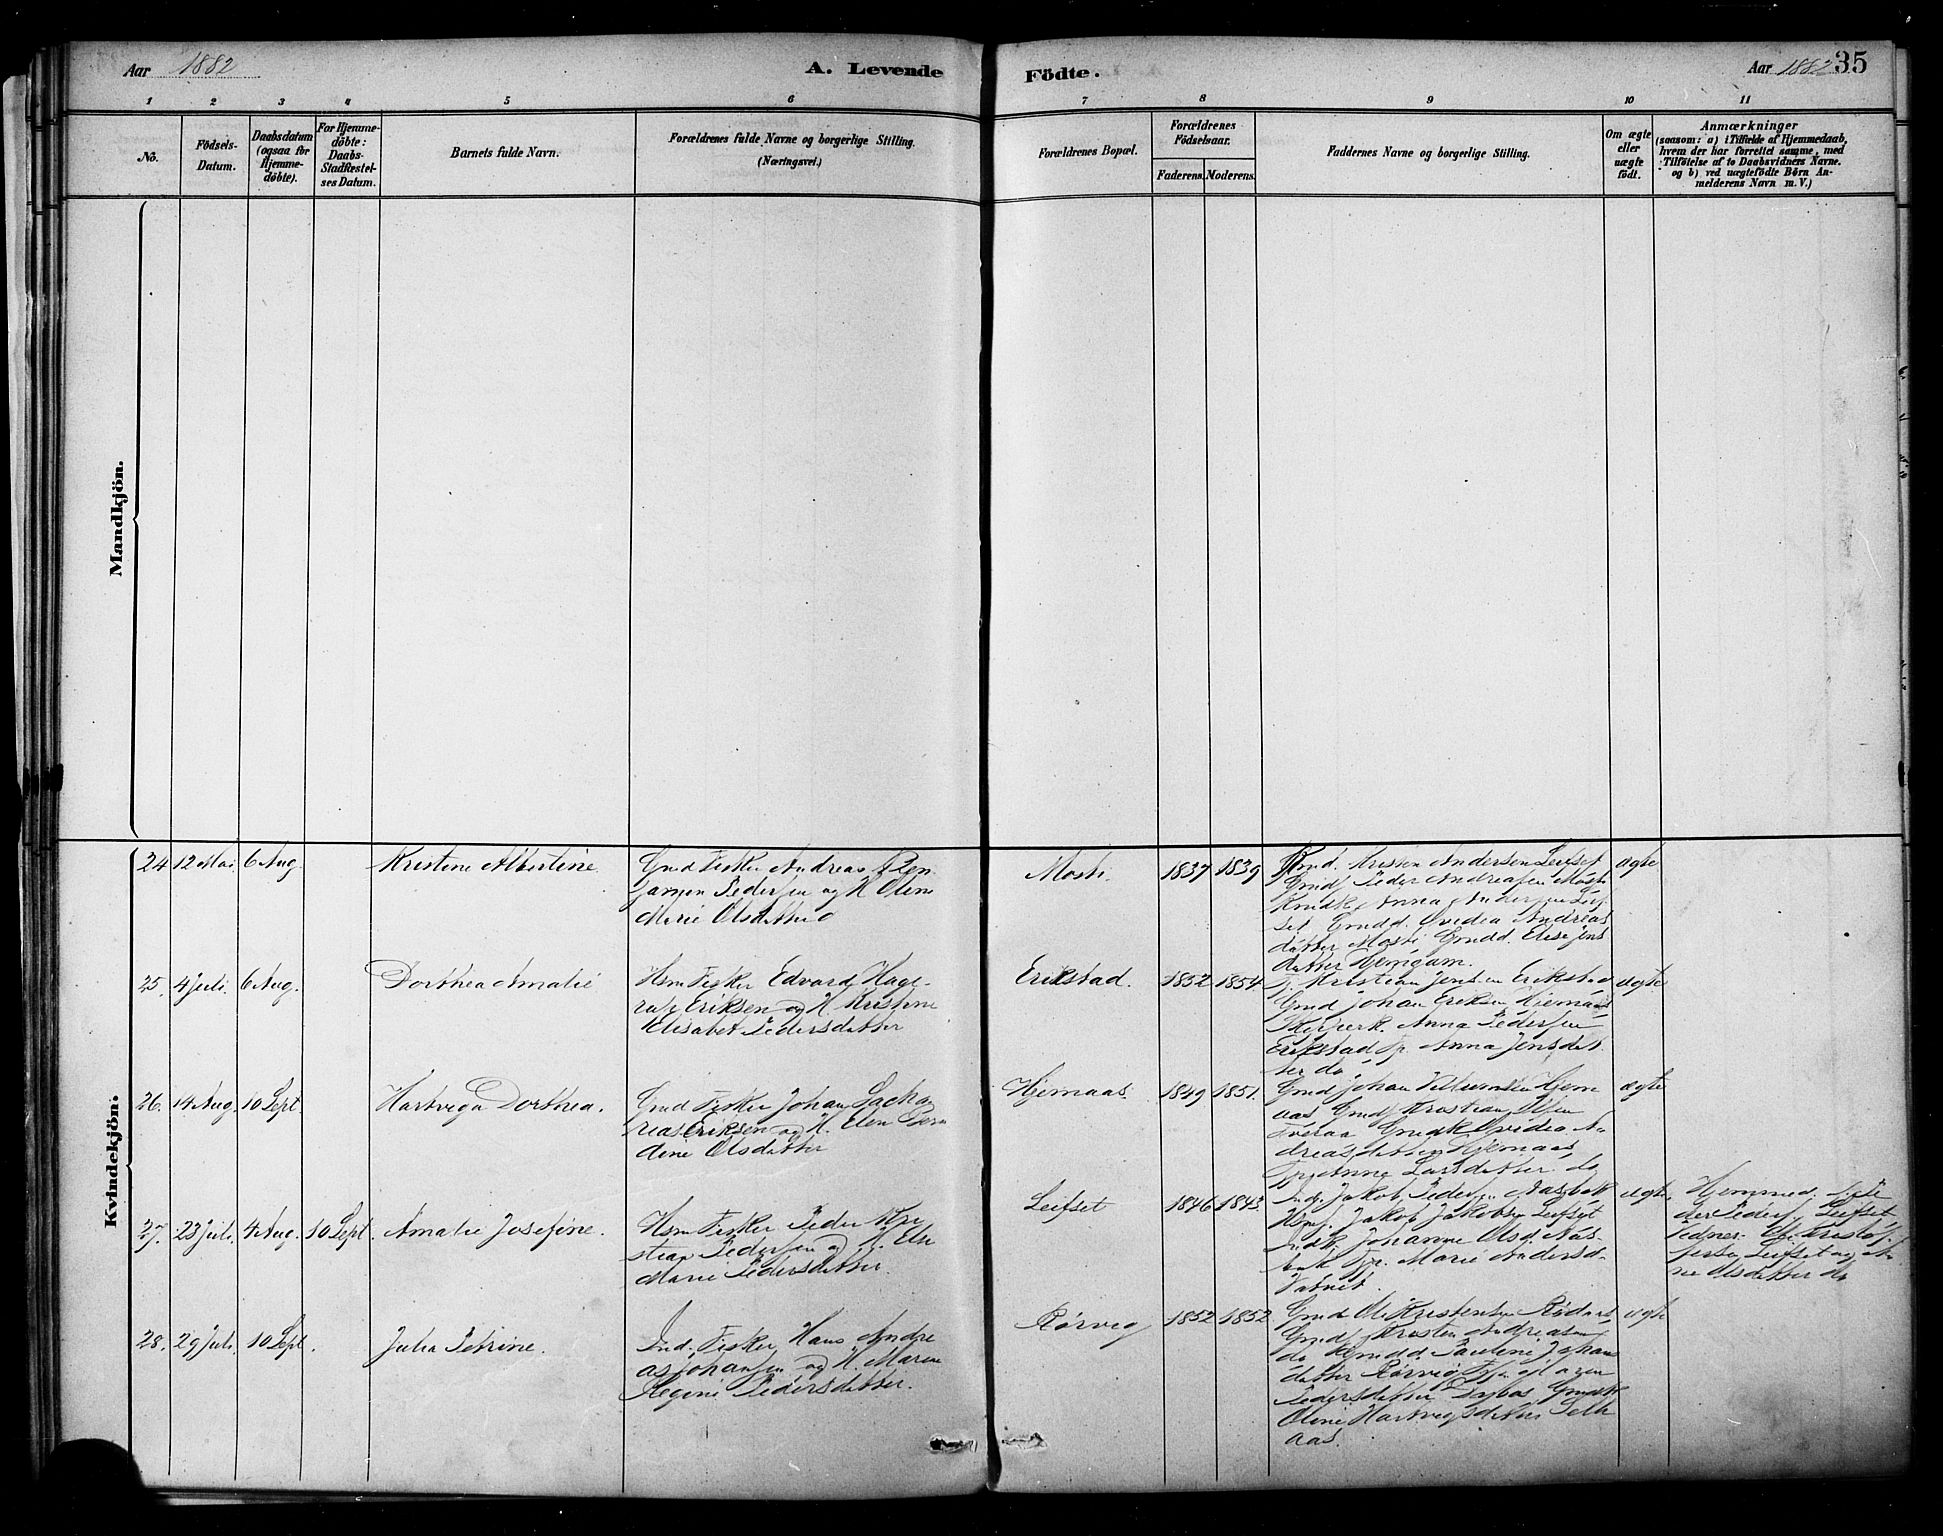 Aar 1882
A. Levende
Födte.
Aar 1882
35
1 2 3 4 5 6 7 8 9 10 11
No.
Födsels-
Datum.
Daabsdatum
(ogsaa for
Hjemme-
döbte).
For Hjemme-
döbte:
Daabs-
Stadfæstel-
ses Datum.
Barnets fulde Navn.
Forældrenes fulde Navne og borgerlige Stilling.
(Næringsvei.)
Forældrenes Bopæl.
Forældrenes
Födselsaar.
Faderens. Moderens.
Faddernes Navne og borgerlige Stilling.
Om ægte
eller
uægte
födt.
Anmærkninger
(saasom: a) i Tilfælde af Hjemmedaab,
hvem der har forrettet samme, med
Tilföielse af to Daabsvidners Navne.
og b) ved uægtefödte Börn An-
melderens Navn m. V.)
Mandkjön.
Kvindekjön.
24 12 Mai 6 Aug
Kristine Albertine
Gmd Fisker Andreas
Pedersen og H Elen
Marie Olsdatter
Mosti
1837 1839
Gmd. Kristen Andersen Leifset
Gmdf Peder Andreasen Mosti
Kmdk Anna Andersen Leif
set Gmdd. Ovidea Andreas
datter Mosti Gmdd. Elise Jens
datter Hjemgam.
ægte
25. 4 Juli. 6 Aug.
Dorthea Amalie
Hsm Fisker Edvard Hage
rup Eriksen og H Kristine
Elisabet Pedersdatter
Erikstad.
1852 1854
Kristian Jensen Erikstad
Gmd Johan Eriksen Hjemaas
Anna Pedersen
Erikstad Tp. Anna Jensdat
ter do
ægte
26. 14 Aug. 10 Sept
Hartviga Dorthea.
Gmd Fisker Johan Sacha
rias Eriksen og H. Elen Bern
dine Olsdatter
Hjemaas
1849 1851.
Gmd Johan Hjem
aas Gmdf Kristian Olsen
Tveraa Gmdk Ovidea An
dreasdatter Hjemaas
Anne Larsdatter do
ægte
27. 23 Juli. 4 Aug. 10 Sept.
Amalie Josefine.
Hsm Fisker Peder Kri
stian Pedersen og H Else
Marie Pedersdatter.
Leifset
1846 1843.
Jakob Pedersen Aasbak
Jakob Jakobsen Leifset
Johanne Olsd. Aas
bak Tp. Marie Andersd.
Vatnet.
ægte
Hjemmed. Pe
der Peders. Leifset
Vidner: Ole Kristof
fersen Leifset og An
ne Olsdatter do
28. 29 Juli. 10 Sept.
Julia Petrine.
Ind. Fisker Hans Andre
as Johansen og H. Maren
Regine Pedersdatter.
Rørvig
1852 1852
Gmd Ole Kristensen Rødaas
Gmdf Kristen Andreasen
do Gmdd. Pauline Johans
datter Rørvig
Pedersdatter Gmdk
Oline Hartvigsdatter Selk
aas.
ægte